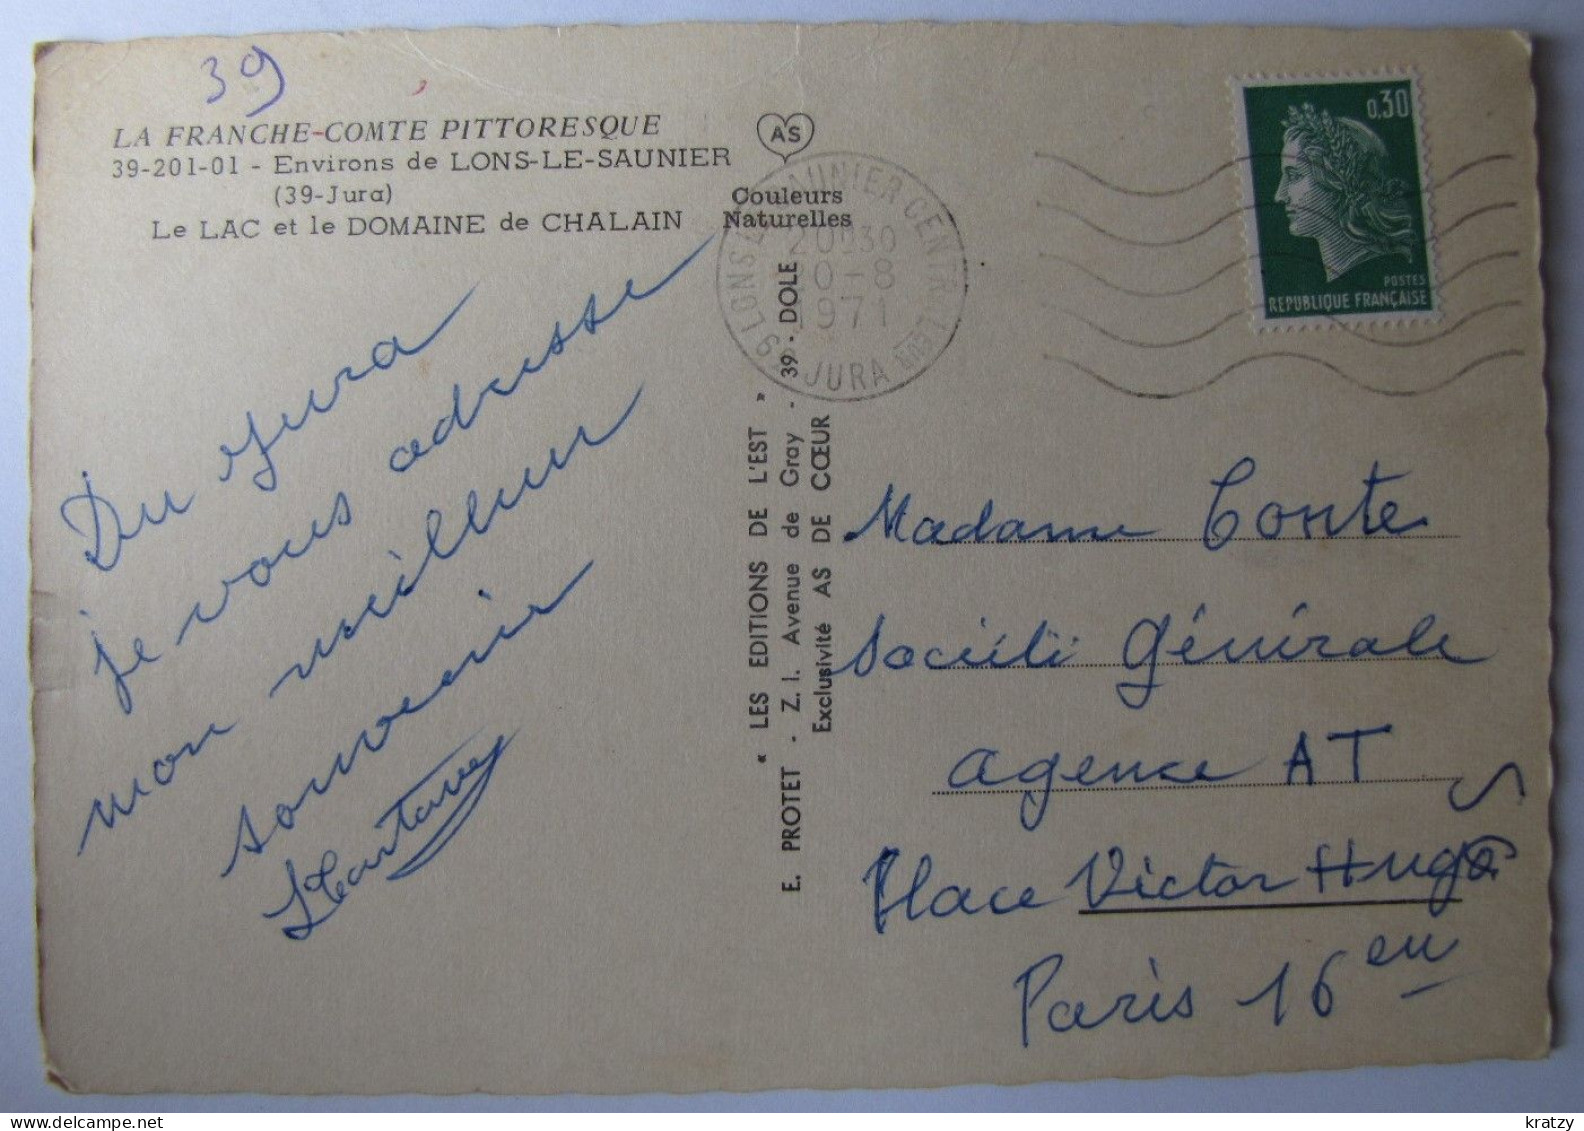 39
LA FRANCHE-COMTE PITTORESQUE
39-201-01 - Environs de LONS-LE-SAUNIER
(39-Jura)
Le LAC et le DOMAINE de CHALAIN
AS
Couleurs
Naturelles
20H30
20-8
1971
JURA
0.30
POSTES
REPUBLIQUE FRANÇAISE
Du Jura
je vous adresse
mon meilleur
souvenir
« LES EDITIONS DE L'EST »
E. PROTET - Z. I. Avenue de Gray - 39 - DOLE
Exclusivité AS DE CŒUR
Madame Conte
Société Générale
agence AT
Place Victor Hugo
Paris 16 en
kratzy